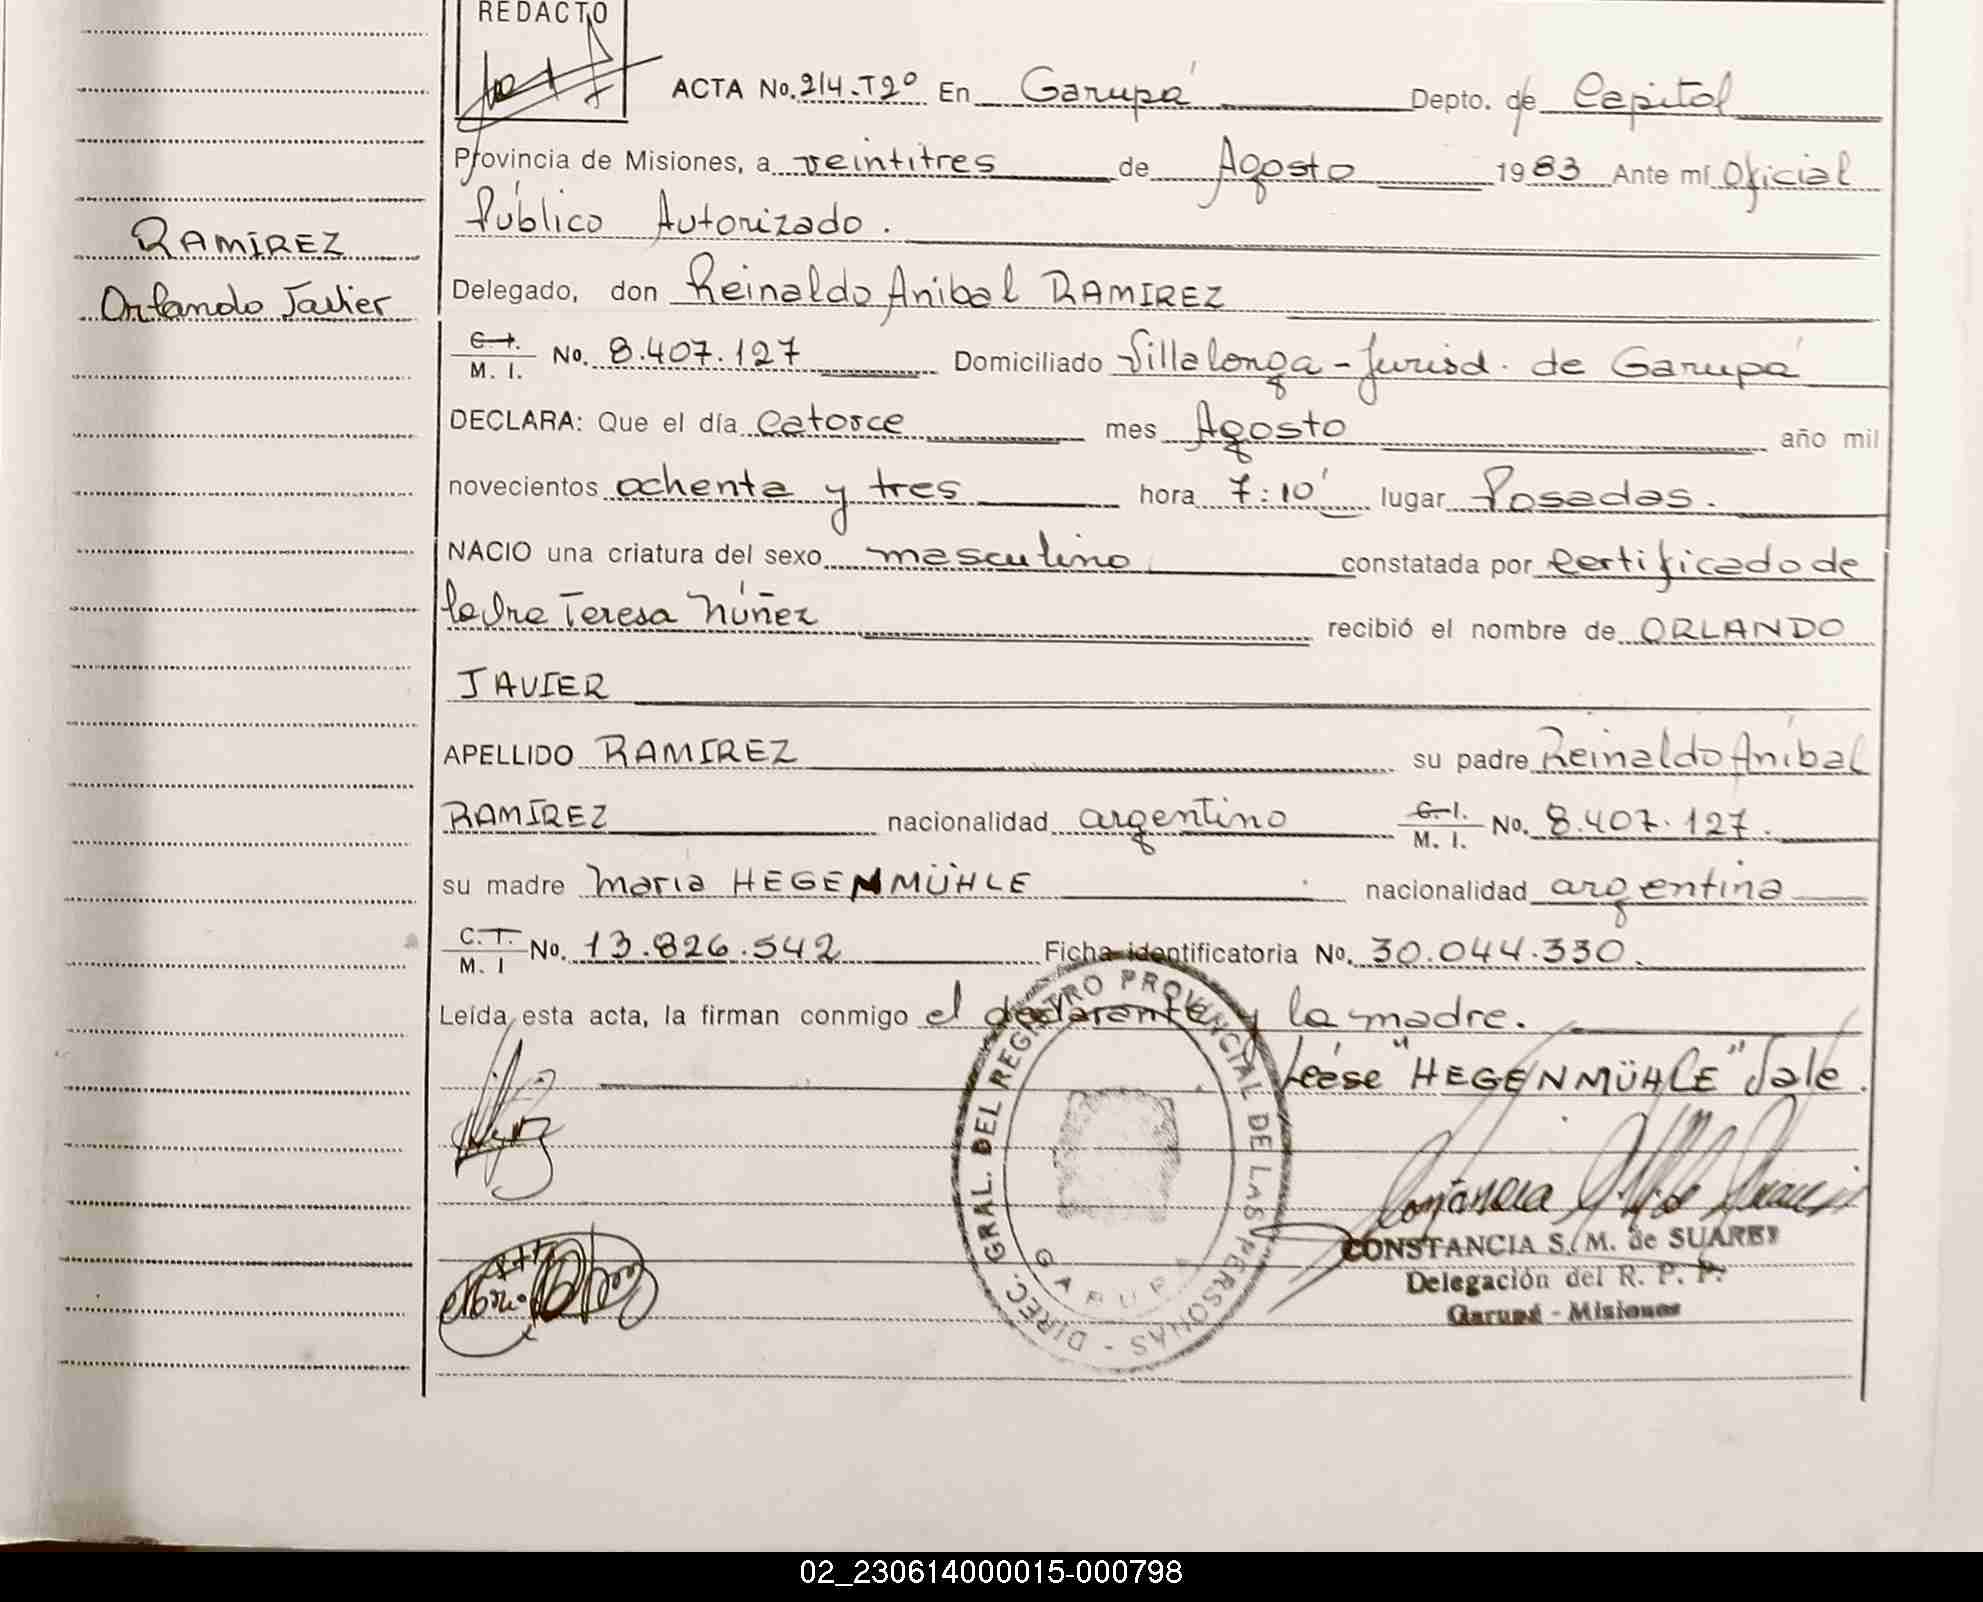 REDACTO
ACTA No. 214.T2º En Garupá Depto. de Capital
Provincia de Misiones, a veintitres de Agosto 1983 Ante mí Oficial
Público Autorizado.
RAMIREZ
Orlando Javier
Delegado, don Reinaldo Anibal RAMIREZ
C.I. M. I. No. 8.407.127 Domiciliado Villalonga - Jurisd. de Garupá
DECLARA: Que el día catorce mes Agosto año mil
novecientos ochenta y tres hora 7:10' lugar Posadas.
NACIO una criatura del sexo masculino constatada por Certificado de
la Dra Teresa Núñez recibió el nombre de ORLANDO
JAVIER
APELLIDO RAMIREZ su padre Reinaldo Aníbal
RAMÍREZ nacionalidad argentino C.I. M. I. No. 8.407.127.
su madre Maria HEGENMÜHLE nacionalidad argentina
C.I. M. I No. 13.826.542 Ficha identificatoria No. 30.044.330.
Leída esta acta, la firman conmigo el declarante y la madre.
Leése "HEGENMÜHLE" Vale.
DIREC. GRAL. DEL REGISTRO PROVINCIAL DE LAS PERSONAS -
GARUPA
CONSTANCIA S. M. de SUAREZ
Delegación del R. P. P.
Garupá - Misiones
02_230614000015-000798